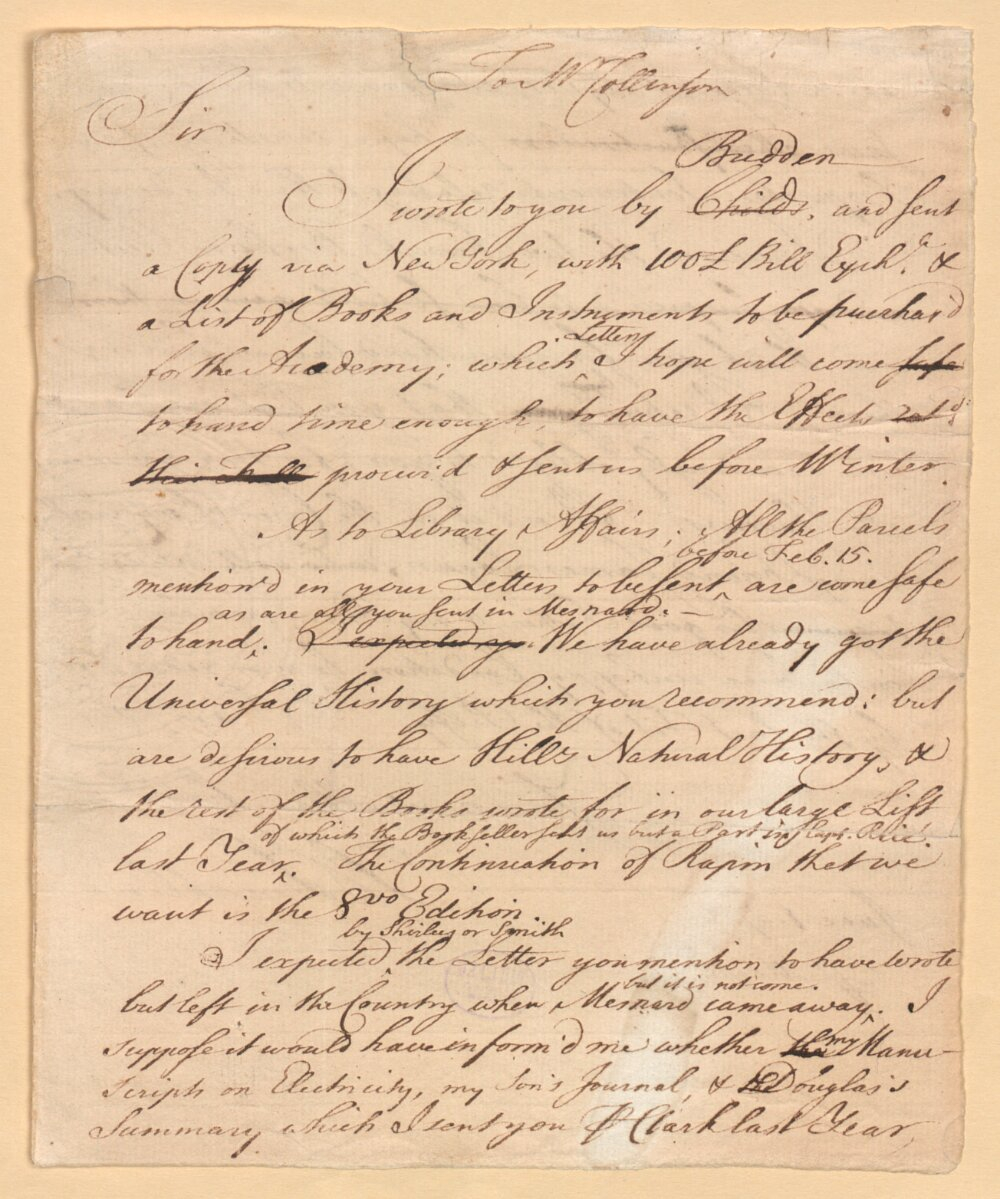 To Mr Collinson
Sir
Budden
I wrote to you by Childs, and sent
a Copy via New York, with 100£ Bill Exch.e &
a List of Books and Instruments to be purchas'd
Letters
for the Academy; which I hope will come safe
to hand time enough, to have the Effects
this Fall procur'd & sent us before Winter.
As to Library Affairs; All the Parcels
before Feb. 15.
mention'd in your Letters to be sent are come safe
as are all you sent in Mesnard. —
to hand. I expected yr. We have already got the
Universal History which you recommend: but
are desirous to have Hill's Natural History, &
the rest of the Books wrote for in our large List
of which the Bookseller sent us but a Part in Capt.
last Year. The Continuation of Rapin that we
want is the 8vo Edition.
by Shirley or Smith
I expected the Letter you mention to have wrote
but it is not come.
but left in the Country when Mesnard came away. I
my
suppose it would have inform'd me whether the Manu-
scripts on Electricity, my Son's Journal, & Douglas's
Summary which I sent you ℔ Clark last Year,